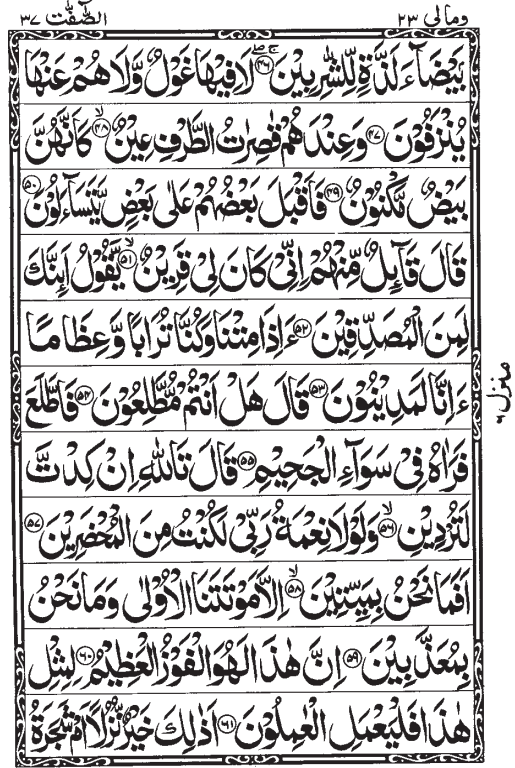 ومالی ٢٣ الصّٰٓفّٰت ٣٧
بَيْضَآءَ لَذَّةٍ لِّلشّٰرِبِيْنَ ۚۖ‏﴿٤٦﴾ لَا فِيْهَا غَوْلٌ وَّلَا هُمْ عَنْهَا
يُنْزَفُوْنَ ﴿٤٧﴾ وَعِنْدَهُمْ قٰصِرٰتُ الطَّرْفِ عِيْنٌ ۙ﴿٤٨﴾ كَاَنَّهُنَّ
بَيْضٌ مَّكْنُوْنٌ ﴿٤٩﴾ فَاَقْبَلَ بَعْضُهُمْ عَلٰى بَعْضٍ يَّتَسَآءَلُوْنَ ﴿٥٠﴾
قَالَ قَآئِلٌ مِّنْهُمْ اِنِّيْ كَانَ لِيْ قَرِيْنٌ ۙ﴿٥١﴾ يَّقُوْلُ اَئِنَّكَ
لَمِنَ الْمُصَدِّقِيْنَ ﴿٥٢﴾ ءَاِذَا مِتْنَا وَكُنَّا تُرَابًا وَّعِظَامًا
ءَاِنَّا لَمَدِيْنُوْنَ ﴿٥٣﴾ قَالَ هَلْ اَنْتُمْ مُّطَّلِعُوْنَ ﴿٥٤﴾ فَاطَّلَعَ
فَرَاٰهُ فِيْ سَوَآءِ الْجَحِيْمِ ﴿٥٥﴾ قَالَ تَاللّٰهِ اِنْ كِدْتَّ
لَتُرْدِيْنِ ۙ﴿٥٦﴾ وَلَوْلَا نِعْمَةُ رَبِّيْ لَكُنْتُ مِنَ الْمُحْضَرِيْنَ ﴿٥٧﴾
اَفَمَا نَحْنُ بِمَيِّتِيْنَ ۙ﴿٥٨﴾ اِلَّا مَوْتَتَنَا الْاُوْلٰى وَمَا نَحْنُ
بِمُعَذَّبِيْنَ ﴿٥٩﴾ اِنَّ هٰذَا لَهُوَ الْفَوْزُ الْعَظِيْمُ ﴿٦٠﴾ لِمِثْلِ
هٰذَا فَلْيَعْمَلِ الْعٰمِلُوْنَ ﴿٦١﴾ اَذٰلِكَ خَيْرٌ نُّزُلًا اَمْ شَجَرَةُ
منزل ٦